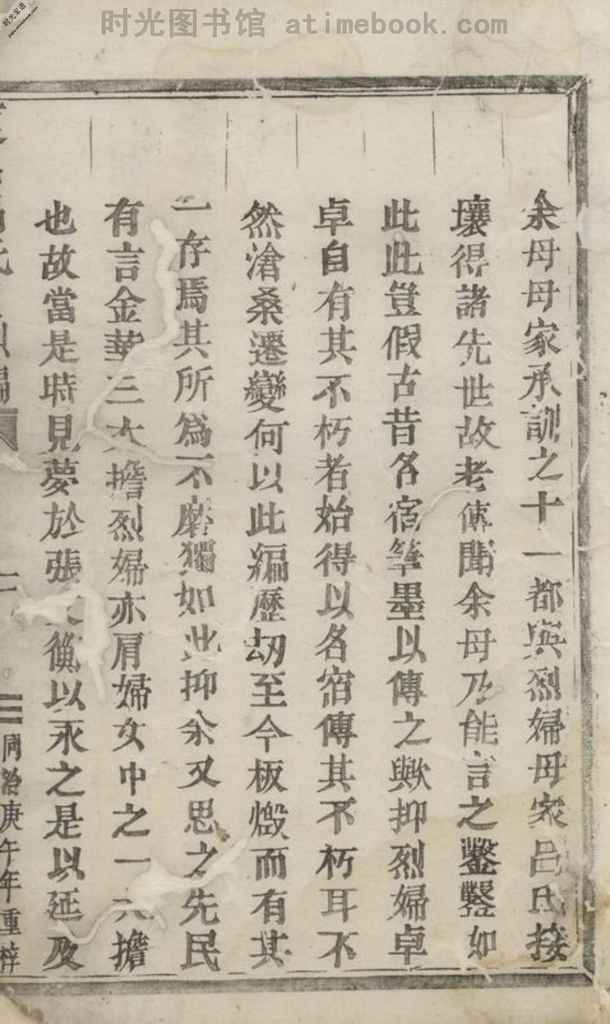 时光图书馆 atimebook.com
余母母家承訓之十一都與烈婦母家呂氏接
壤得諸先世故老傳聞余母乃能言之鑿鑿如
此此豈假古昔各宿筆墨以傳之歟抑烈婦卓
卓自有其不朽者始得以各宿傳其不朽耳不
然滄桑遷變何以此編歷刼至今板燬而有其
一存焉其所為不磨獨如此抑余又思之先民
有言金華三大擔烈婦亦肩婦女中之一大擔
也故當是時見夢於張以永之是以延及
同治庚午年重梓